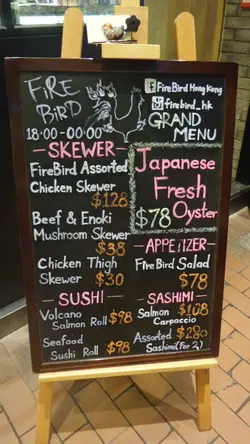 FiRE
BiRD
18:00-00:00
FireBird Hong Kong
firebird_hk
GRAND
MENU
- SKEWER -
FireBird Assorted
Chicken Skewer
$128
Beef & Enoki
Mushroom Skewer
$38
Chicken Thigh
Skewer $30
Japanese
Fresh
Oyster
$78
- APPETIZER -
FireBird Salad
$78
- SUSHI -
Volcano
Salmon Roll $98
Seafood
Sushi Roll $98
- SASHIMI -
Salmon $108
Carpaccio
Assorted $290
Sashimi (For 2)